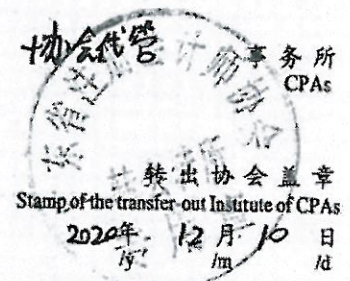 协会代管 事务所
CPAs
转出协会盖章
Stamp of the transfer-out Institute of CPAs
2020年 12月 10日
/y /m /d